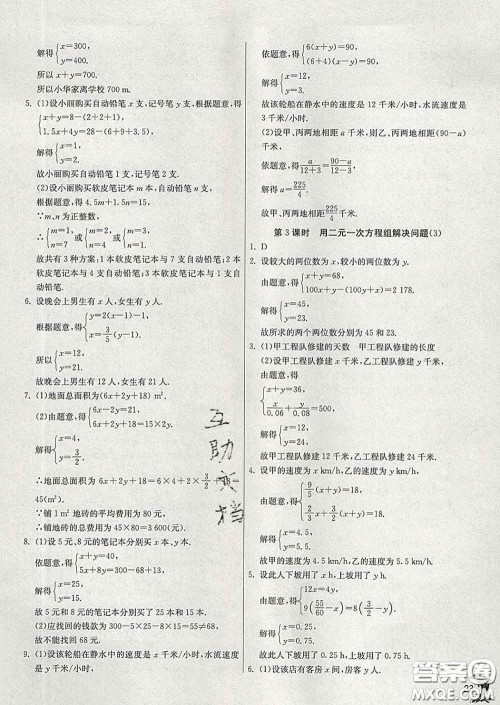 解得{x=300,
y=400.
所以 x+y=700.
所以小华家离学校 700 m.
5. (1)设小丽购买自动铅笔 x 支,记号笔 y 支,根据题意,得
{x+y=8-(2+2+1),
1.5x+4y=28-(6+9+3.5).
解得{x=1,
y=2.
故小丽购买自动铅笔 1 支,记号笔 2 支.
(2)设小丽购买软皮笔记本 m 本,自动铅笔 n 支,
根据题意,得 4.5m+1.5n=15.
∵m,n 为正整数,
∴{m=1,
n=7
或{m=2,
n=4
或{m=3,
n=1.
故共有 3 种方案:1 本软皮笔记本与 7 支自动铅笔;2 本
软皮笔记本与 4 支自动铅笔;3 本软皮笔记本与 1 支自动
铅笔.
6. 设晚会上男生有 x 人,女生有 y 人.
根据题意,得{y=2(x-1)-1,
x=3/5(y-1).
所以{x=12,
y=21.
故晚会上男生有 12 人,女生有 21 人.
7. (1)地面总面积为(6x+2y+18) m².
(2)由题意,得{6x-2y=21,
6x+2y+18=15×2y.
解得{x=4,
y=3/2.
∴地面总面积 6x+2y+18=6×4+2×3/2+
45(m²).
∵铺 1 m² 地砖的平均费用为 80 元,
∴铺地砖的总费用为 45×80=3 600(元).
8. (1)设 5 元、8 元的笔记本分别买 x 本、y 本.
依题意,得{x+y=40,
5x+8y=300-68+13.
解得{x=25,
y=15.
故 5 元和 8 元的笔记本分别买了 25 本和 15 本.
(2)应找回的钱款为 300-5×25-8×15=55≠68,
故不能找回 68 元.
9. (1)设该轮船在静水中的速度是 x 千米/小时,水流速度
是 y 千米/小时,
依题意,得{6(x+y)=90,
(6+4)(x-y)=90,
解得{x=12,
y=3.
故该轮船在静水中的速度是 12 千米/小时,水流速度是
3 千米/小时.
(2)设甲、丙两地相距 a 千米,则乙、丙两地相距(90-a)
千米.
依题意,得a/(12+3)=(90-a)/(12-3).
解得 a=225/4.
故甲、丙两地相距225/4千米.
第 3 课时 用二元一次方程组解决问题(3)
1. D
2. 设较大的两位数为 x,较小的两位数为 y.
由题意,得{x+y=68,
100x+y-(100y+x)=2 178.
解得{x=45,
y=23.
故所求的两个两位数分别为 45 和 23.
3. (1)甲工程队修建的天数 甲工程队修建的长度
(2)设甲工程队修建 x 千米,乙工程队修建 y 千米.
由题意,得
{x+y=36,
x/0.06+y/0.08=500,
解得{x=12,
y=24.
故甲工程队修建 12 千米,乙工程队修建 24 千米.
4. 设甲的速度为 x km/h,乙的速度为 y km/h.
由题意,得{4(x-y)=4,
9/5(x+y)=18,
解得{x=4.5,
y=5.5.
故甲的速度为 4.5 km/h,乙的速度为 5.5 km/h.
5. 设此人上坡用了 x h,下坡用了 y h.
由题意,得
解得{x=0.25,
y=0.75.
故此人上坡用了 0.25 h,下坡用了 0.75 h.
6. (1)设该店有客房 x 间,房客 y 人.
互
助
文
档
答案圈
MXQE.COM